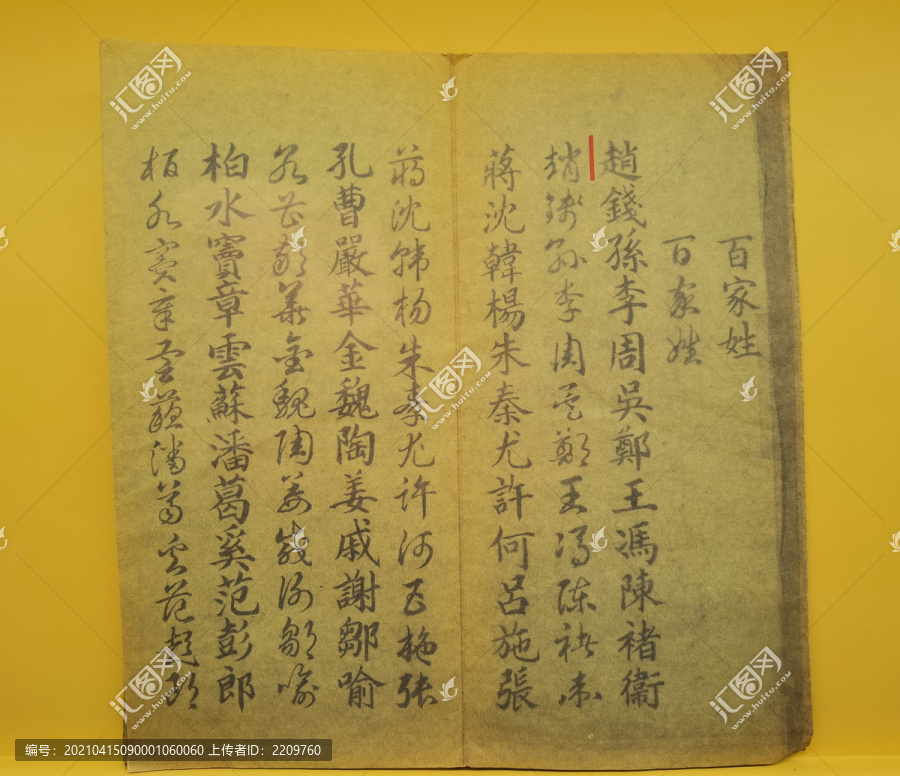 百家姓
百家姓
趙錢孫李周吳鄭王馮陳褚衞
趙錢孫李周吳鄭王馮陳褚衞
蔣沈韓楊朱秦尤許何呂施張
蔣沈韓楊朱秦尤許何呂施張
孔曹嚴華金魏陶姜戚謝鄒喻
孔曹嚴華金魏陶姜戚謝鄒喻
柏水竇章雲蘇潘葛奚范彭郎
柏水竇章雲蘇潘葛奚范彭郎
汇图网
www.huitu.com
编号：20210415090001060060 上传者ID：2209760